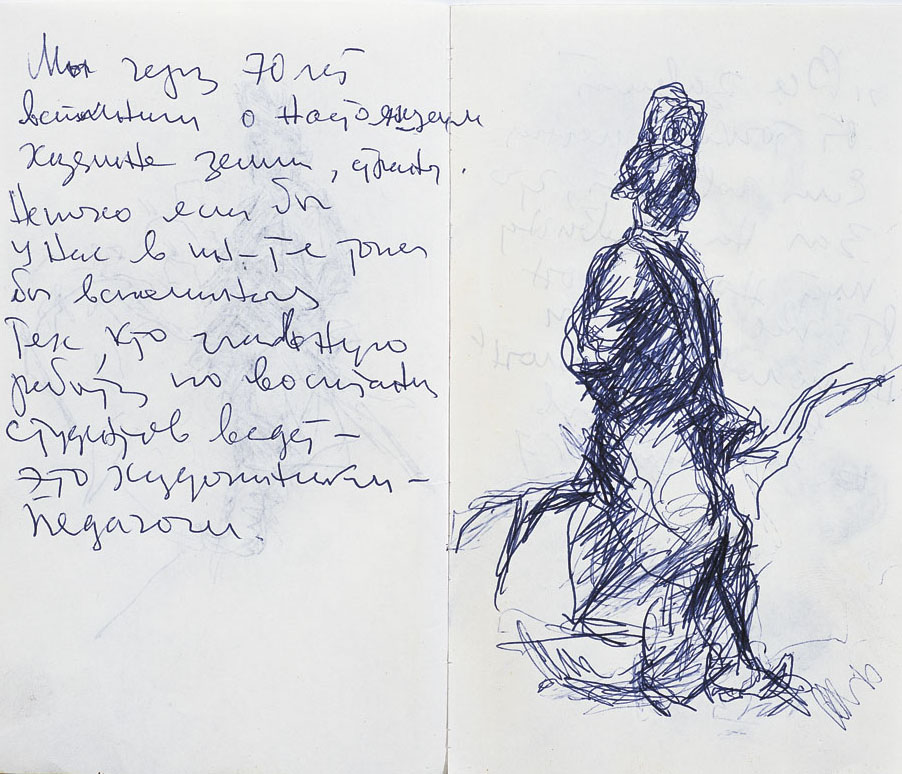 Мы через 70 лет
вспомнили о настоящем
хозяине земли, страны.
Неплохо если бы
у нас в ин-те тоже
бы вспомнили
Тех, кто главную
работу по воспитанию
студентов ведет –
это художники –
Педагоги.